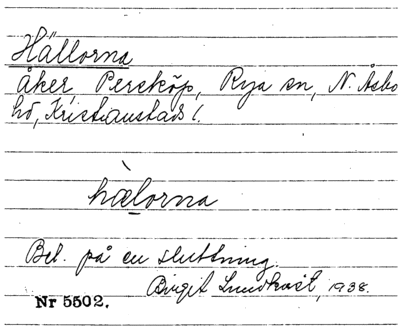 Hällorna
åker, Persköp, Rya sn, N. Åsbo
hd, Kristianstads l.
hàlorna
Bel. på en sluttning.
Birgit Lundkvist, 1938.
Nr 5502.